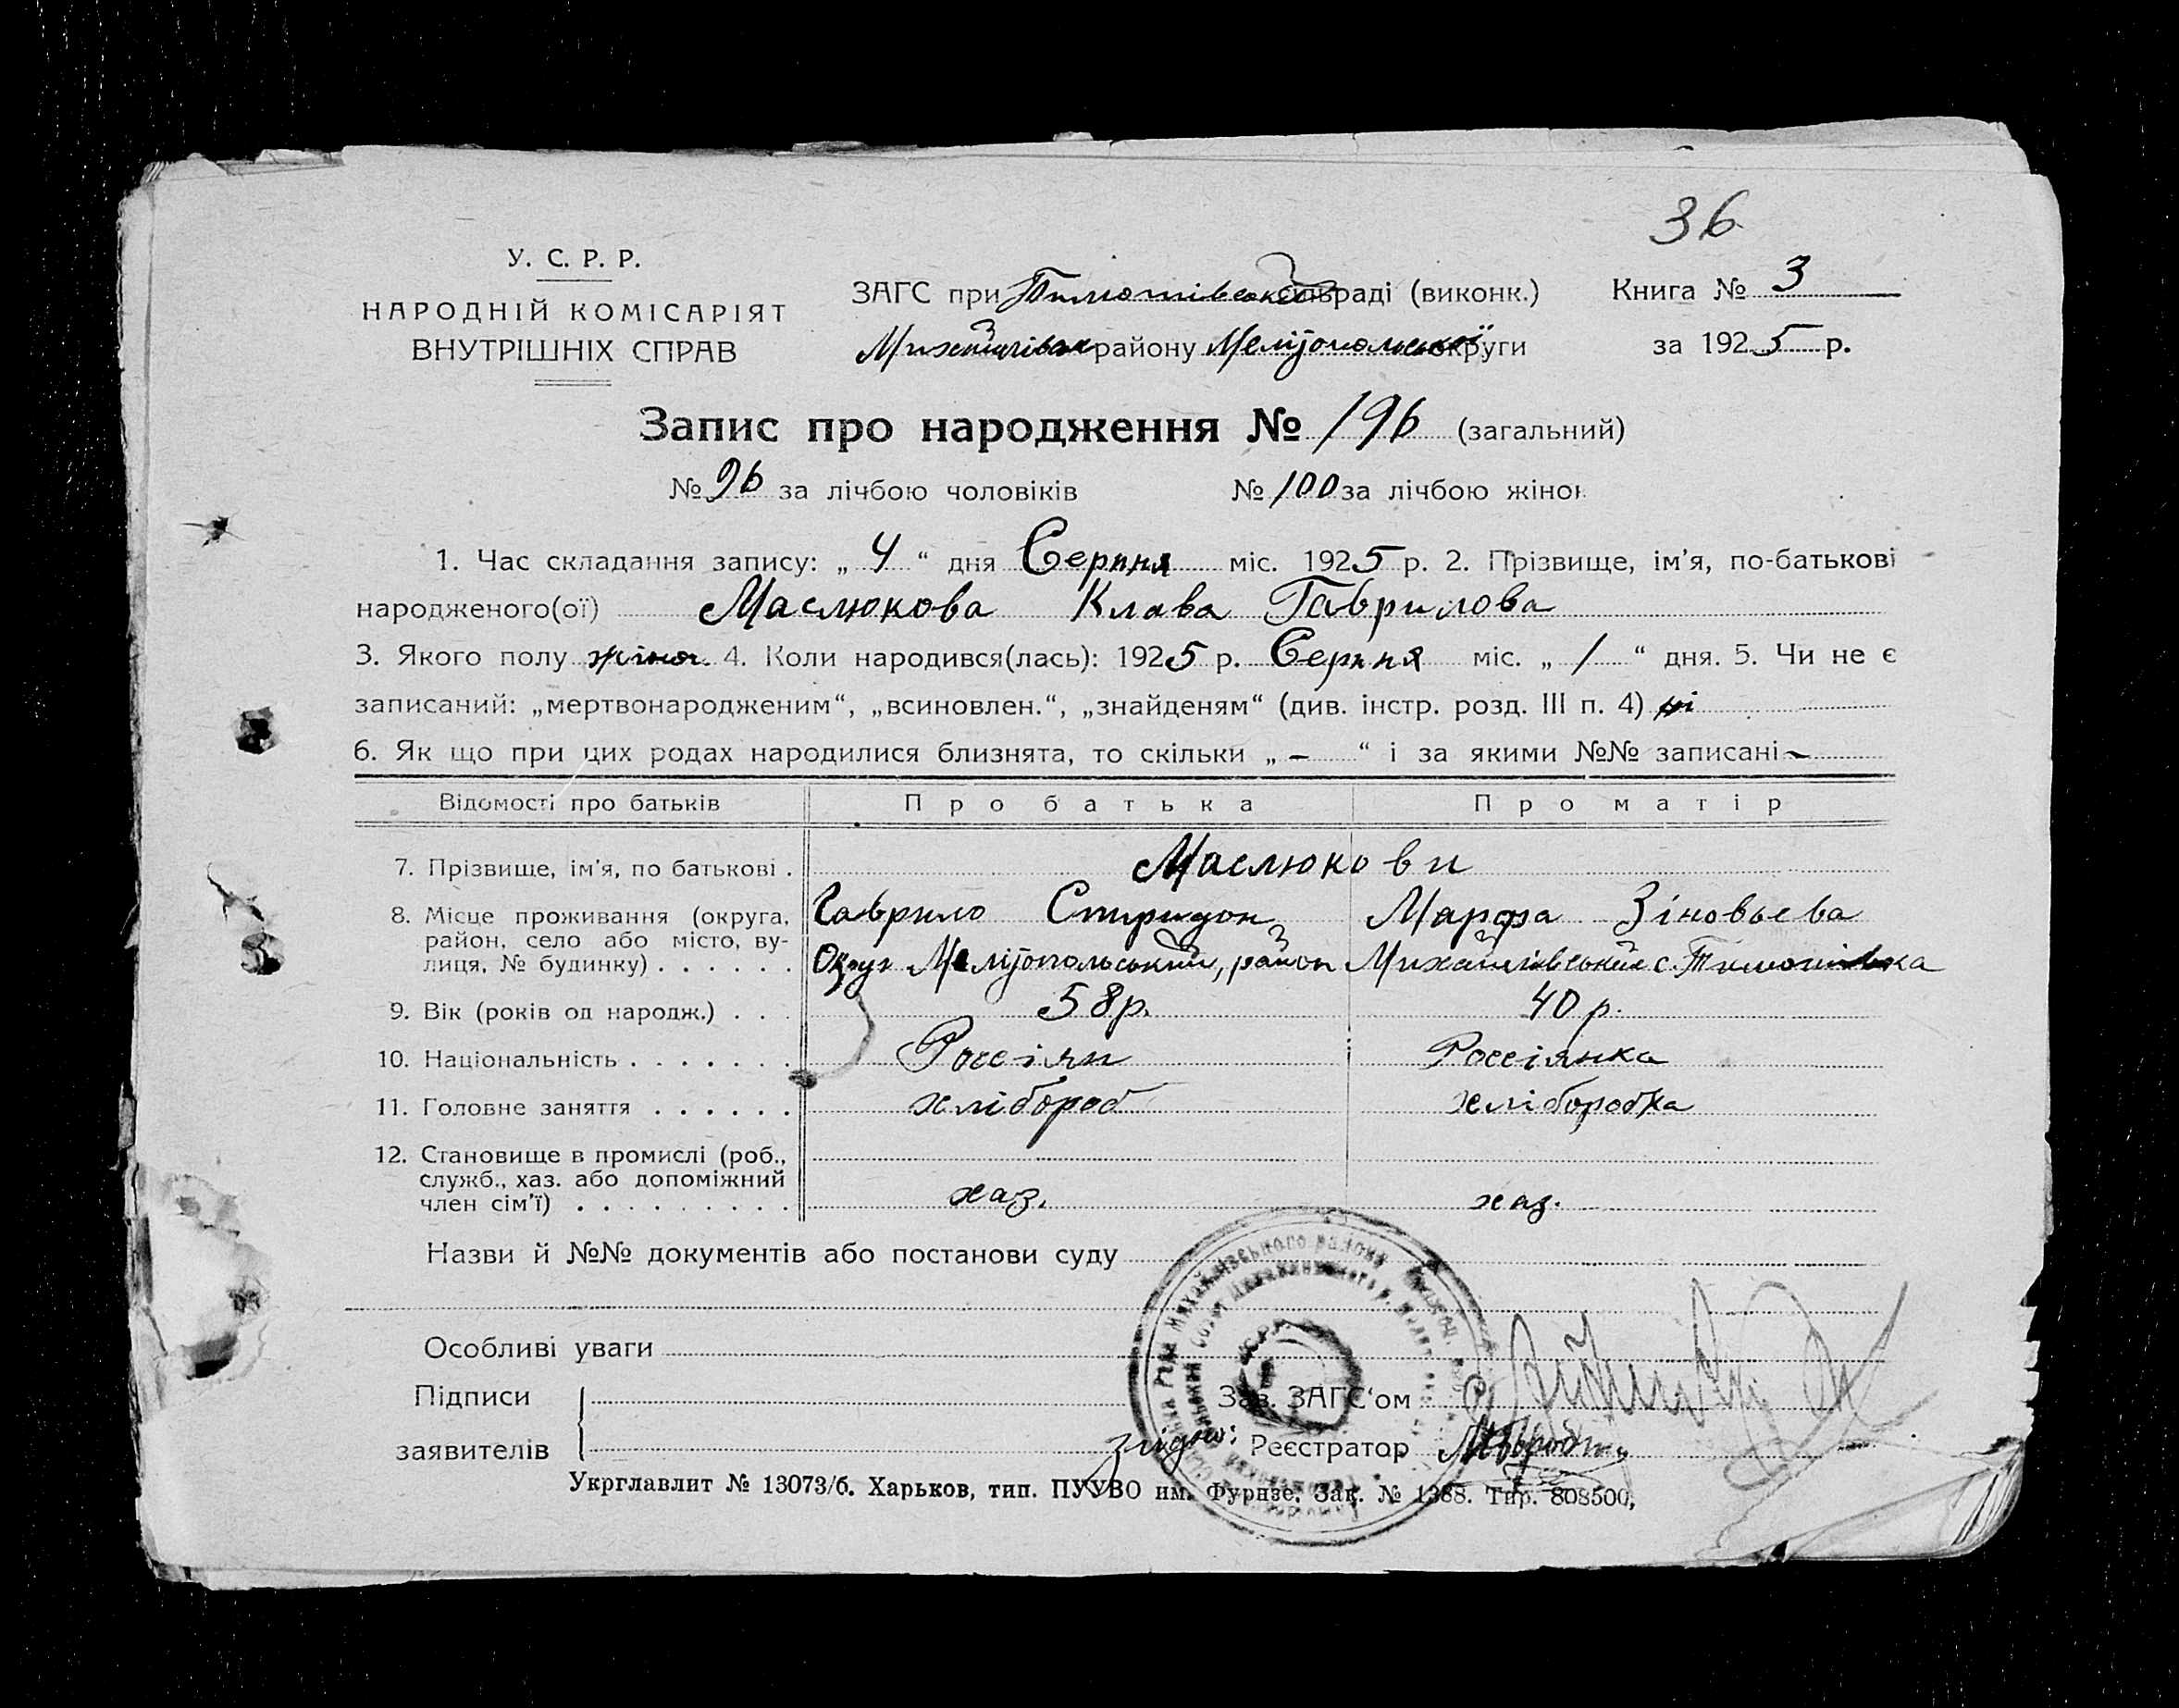 36
У. С. Р. Р.
НАРОДНІЙ КОМІСАРІЯТ
ВНУТРІШНІХ СПРАВ
ЗАГС при Тимошівській сільраді (виконк.)
Михайлівськ району Мелітопольської округи
Книга № 3
за 1925 р.
Запис про народження № 196 (загальний)
№ 96 за лічбою чоловіків № 100 за лічбою жінок
1. Час складання запису: „ 4 “ дня Серпня міс. 1925 р. 2. Прізвище, ім’я, по-батькові
народженого(ої) Маслюкова Клава Гаврилова
3. Якого полу жіноч. 4. Коли народився(лась): 1925 р. Серпня міс. „ 1 “ дня. 5. Чи не є
записаний: „мертвонародженим“, „всиновлен.“, „знайденям“ (див. інстр. розд. III п. 4) ні
6. Як що при цих родах народилися близнята, то скільки „ – “ і за якими №№ записані –
Відомості про батьків Про батька Про матір
7. Прізвище, ім’я, по батькові . Маслюкови
8. Місце проживання (округа, Гаврило Спиридон Марфа Зіновьева
район, село або місто, ву-
лиця, № будинку) . . . . . . Округ Мелітопольський, район Михайлівський с. Тимошівка
9. Вік (років од народж.) . . . 58 р. 40 р.
10. Національність . . . . . . . Россіян Россіянка
11. Головне заняття . . . . . . хлібороб хлібробка
12. Становище в промислі (роб.,
служб., хаз. або допоміжний
член сім’ї) . . . . . . . . . хаз. хаз.
Назви й №№ документів або постанови суду
Особливі уваги
Підписи
заявителів
Зав. ЗАГС‘ом
згідно: Реєстратор
Укрглавлит № 13073/б. Харьков, тип. ПУУВО им. Фурнзе. Зак. № 1388. Тир. 808500,